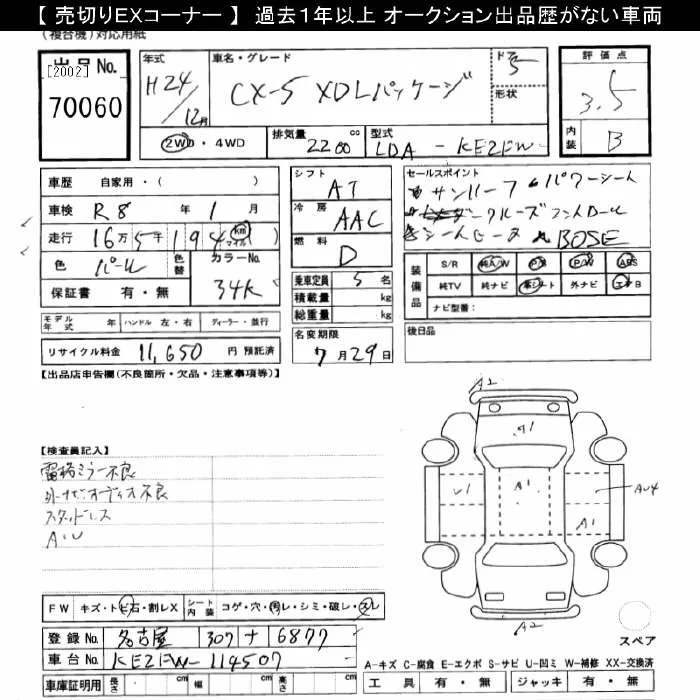 【 売切りEXコーナー 】 過去1年以上 オークション出品歴がない車両
(複合機)対応用紙
出品No. [2002] 70060
年式 H24/12月
車名・グレード CX-5 XDLパッケージ
ドア 5 形状
評価点 3.5
内装 B
2WD・4WD 排気量 2200 cc 型式 LDA - KE2FW-
車歴 自家用・( )
車検 R8 年 1 月
走行 16万5千194 km マイル
色 パール 色替 カラーNo. 34K
保証書 有・無
シフト AT
冷房 AAC
燃料 D
乗車定員 5 名
積載量 kg
総重量 kg
セールスポイント
サンルーフ パワーシート
クルーズコントロール
シートヒータ BOSE
装備品 S/R 純A/W P/S P/W ABS
純TV 純ナビ 革シート 外ナビ エアB
ナビ型番:
モデル年式 年 ハンドル 左・右 ディーラー・並行
リサイクル料金 11,650 円 預託済
名変期限 7月29日
後日品
【出品店申告欄(不良箇所・欠品・注意事項等)】
【検査員記入】
電格ミラー不良
外ナビオーディオ不良
スタッドレス
A・U
A2
A1
U1
A1
AU4
A1
A2
スペア
FW キズ・トビ石・割レX シート内装 コゲ・穴・汚レ・シミ・破レ・スレ
登録No. 名古屋 307 ナ 6877
車台No. KE2FW-114507
車庫証明用 長さ cm 幅 cm 高さ cm
A-キズ C-腐食 E-エクボ S-サビ U-凹ミ W-補修 XX-交換済
工具 有・無 ジャッキ 有・無